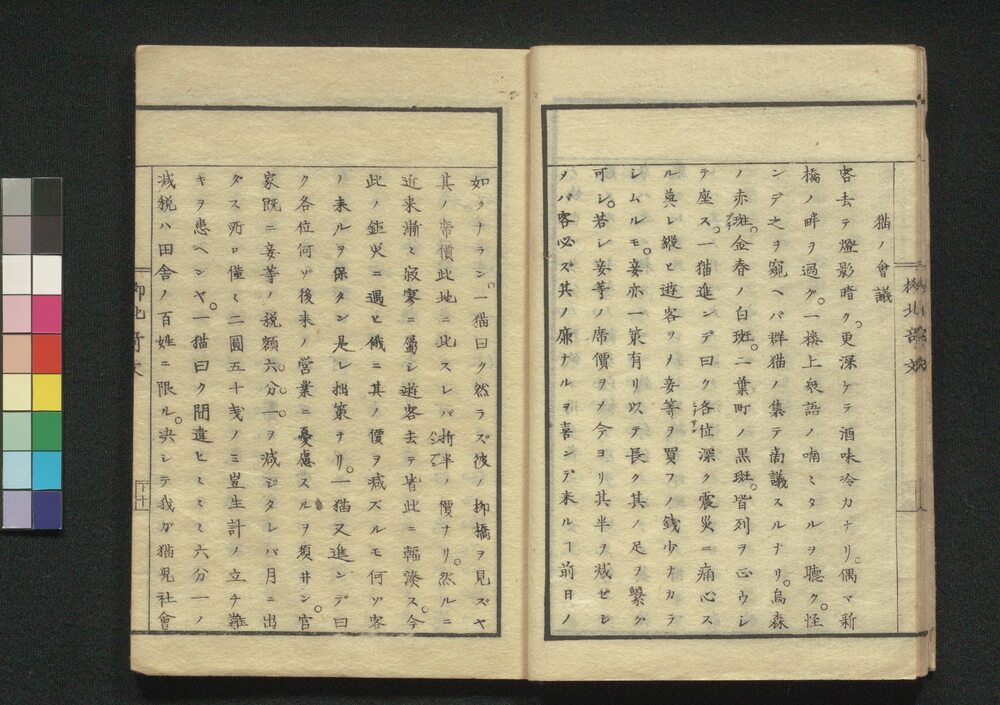 猫ノ會議
客去テ燈影暗ク。更深ケテ酒味冷カナリ。偶マ新
橋ノ畔ヲ過グ。一楼上衆語ノ喃ミタルヲ聴ク。怪
ンデ之ヲ窺ヘバ群猫ノ集テ啇議スルナリ。烏森
ノ赤斑。金春ノ白斑。一葉町ノ黒斑。皆列ヲ正ウシ
テ座ス。一猫進ンデ曰ク各位深ク震災ニ痛心ス
ル莫レ縦ヒ遊客ヲノ妾等ヲ買フノ銭少ナカラ
シムルモ。妾亦一策有リ以テ長ク其ノ足ヲ繋グ
可シ。若シ妾等ノ席價ヲノ今ヨリ其半ヲ减ゼシ
メバ客必ズ其ノ廉ナルヲ喜ンデ来ルヿ前日ノ
如クナラン。一猫曰ク然ラズ彼ノ柳橋ヲ見ズヤ
其ノ席價此地ニ比スレバ折半ノ價ナリ。然ルニ
近来漸ミ寂寥ニ屬シ遊客去テ皆此ニ輻湊ス。今
此ノ鉅災ニ遇ヒ俄ニ其ノ價ヲ减ズルモ何ゾ客
ノ来ルヲ保タン是レ拙策ナリ。一猫又進ンデ曰
ク各位何ゾ後来ノ営業ニ憂慮スルヲ須井ン。官
家既ニ妾等ノ税額六分。一。ヲ减ジタレバ月ニ出
ダス所ロ僅ミ二圓五十戔ノミ豈生計ノ立チ難
キヲ患ヘンヤ。一猫曰ク間違ヒミミミ六分一ノ
减税ハ田舎ノ百姓ニ限ル。决シテ我ガ猫児社會